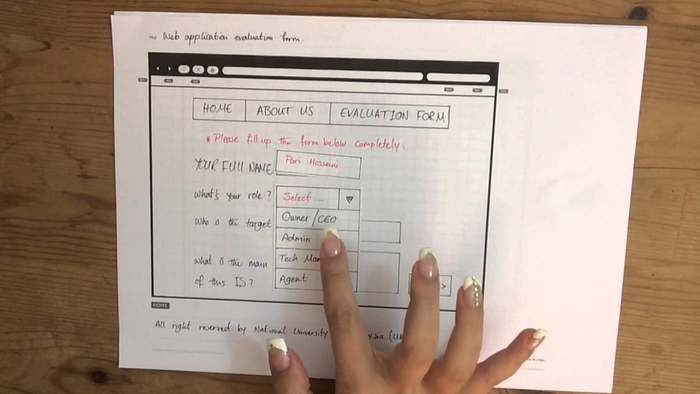 Web application evaluation form
HOME ABOUT US EVALUATION FORM
* Please fill up the form below completely.
YOUR FULL NAME Pari Hosseini
What's your role? Select ...
Owner/CEO
Who is the target
Admin
What is the main Tech Man
of this IS? Agent
>
HOME
All right reserved by National University